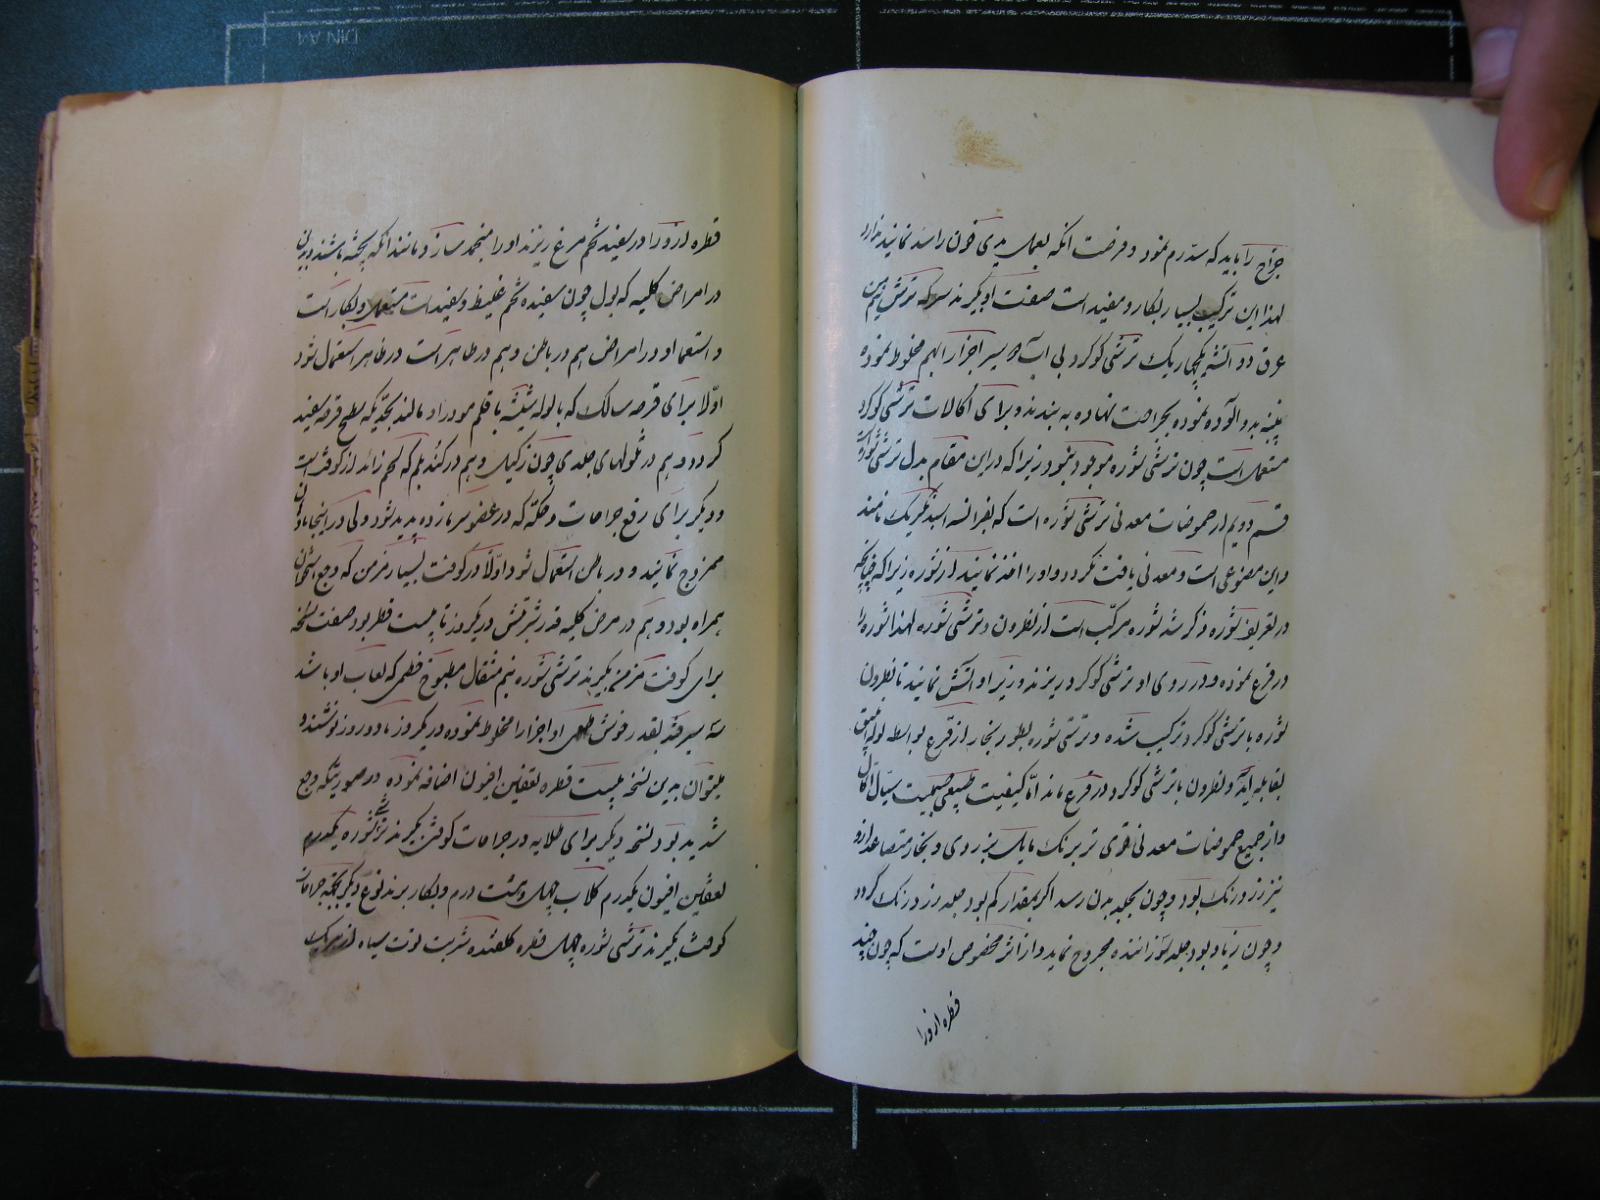 جراح را باید که سدّ رم نمود و فرصت آنکه بعمل یدی خون را سد نمایند ندارد
لهذا این ترکیب بسیار بکار و مفید است صفت او بگیرند سرکه ترش نیم من
عرق دو آتشه یکچهاریک ترشی گوگرد بی آب سیر اجزا را بهم مخلوط نموده
پنبه بدو آلوده نموده بجراحت نهاده به بندند و برای آکالات ترشی گوگرد
مستعمل است چون ترشی شوره موجود نبود زیرا که در این مقام بدل ترشی شوره است
قسم دویم از حموضات معدنی ترشی شوره است که بفرانسه اسید نطریک نامند
و این مصنوعی است و معدنی یافت نگردد و او را اخذ نمایند از شوره زیرا که چنانچه
در تعریف شوره ذکر شد شوره مرکّب است از نطرون و ترشی شوره لهذا شوره را
در قرع نموده و در روی او ترشی گوگرد ریزند و زیر او آتش نمایند تا نطرون
شوره با ترشی گوگرد ترکیب شده و ترشی شوره بطور بخار از قرع بواسطه لوله انبیق
بقابله آید و نطرون با ترشی گوگرد در قرع ماند امّا کیفیت طبیعی جسمیت سیّال اکّال
و از جمیع حموضات معدنی قوی تر برنک مایل بزردی و بخار متصاعد ازو
نیز زرد رنک بود و چون بجلد بدن رسد اگر بمقدار کم بود جلد زرد رنک گردد
و چون زیاد بود جلد سوزاننده مجروح نماید و از اثر مخصوص اوست که چون چند
قطره از و را
قطره از و را در سفیده تخم مرغ ریزند او را منجمد سازد و مانند آنکه پخته باشند و بدین
در امراض کلیه که بول چون سفیده تخم غلیظ و سفید است مستعمل و بکار است
و استعمال او در امراض هم در باطن و هم در ظاهر است در ظاهر استعمال شود
اوّلا برای قرحه سالک که با لوله شیشه یا قلم مو در او مالند بحدّیکه سطح قرحه سفید
گردد و هم در ثلولهای جلدی چون زکیل و هم در کند بلم که لحم زائد از کوفت است
و دیگر برای رفع جراحات و حکّه که در عضو سرمازده پدید شود ولی در اینجا با روغن
ممزوج نمایند و در باطن استعمال شود اوّلا در کوفت بسیار مزمن که وجع استخوان
همراه بود و هم در مرض کلیه قدر شربتش در یکروز تا بیست قطره بود صفت نسخه
برای کوفت مزمن بگیرند ترشی شوره نیم مثقال مطبوخ خطمی که لعاب او باشد
سه سیر قند بقدر خوش طعمی او اجزا را مخلوط نموده در یکروز یا دو روز نوشند و
میتوان بدین نسخه بیست قطره لعقین افیون اضافه نموده در صورتیکه وجع
شدید بود نسخه دیگر برای طلا به در جراحات کوفتی بگیرند ترشی شوره یکدرم
لعقین افیون یکدرم گلاب چهل و هشت درم و بکار برند نوع دیگر بجهة جراحات
کوفت بگیرند ترشی شوره چهل قطره گلقند شربت توت سیاه از هر یک